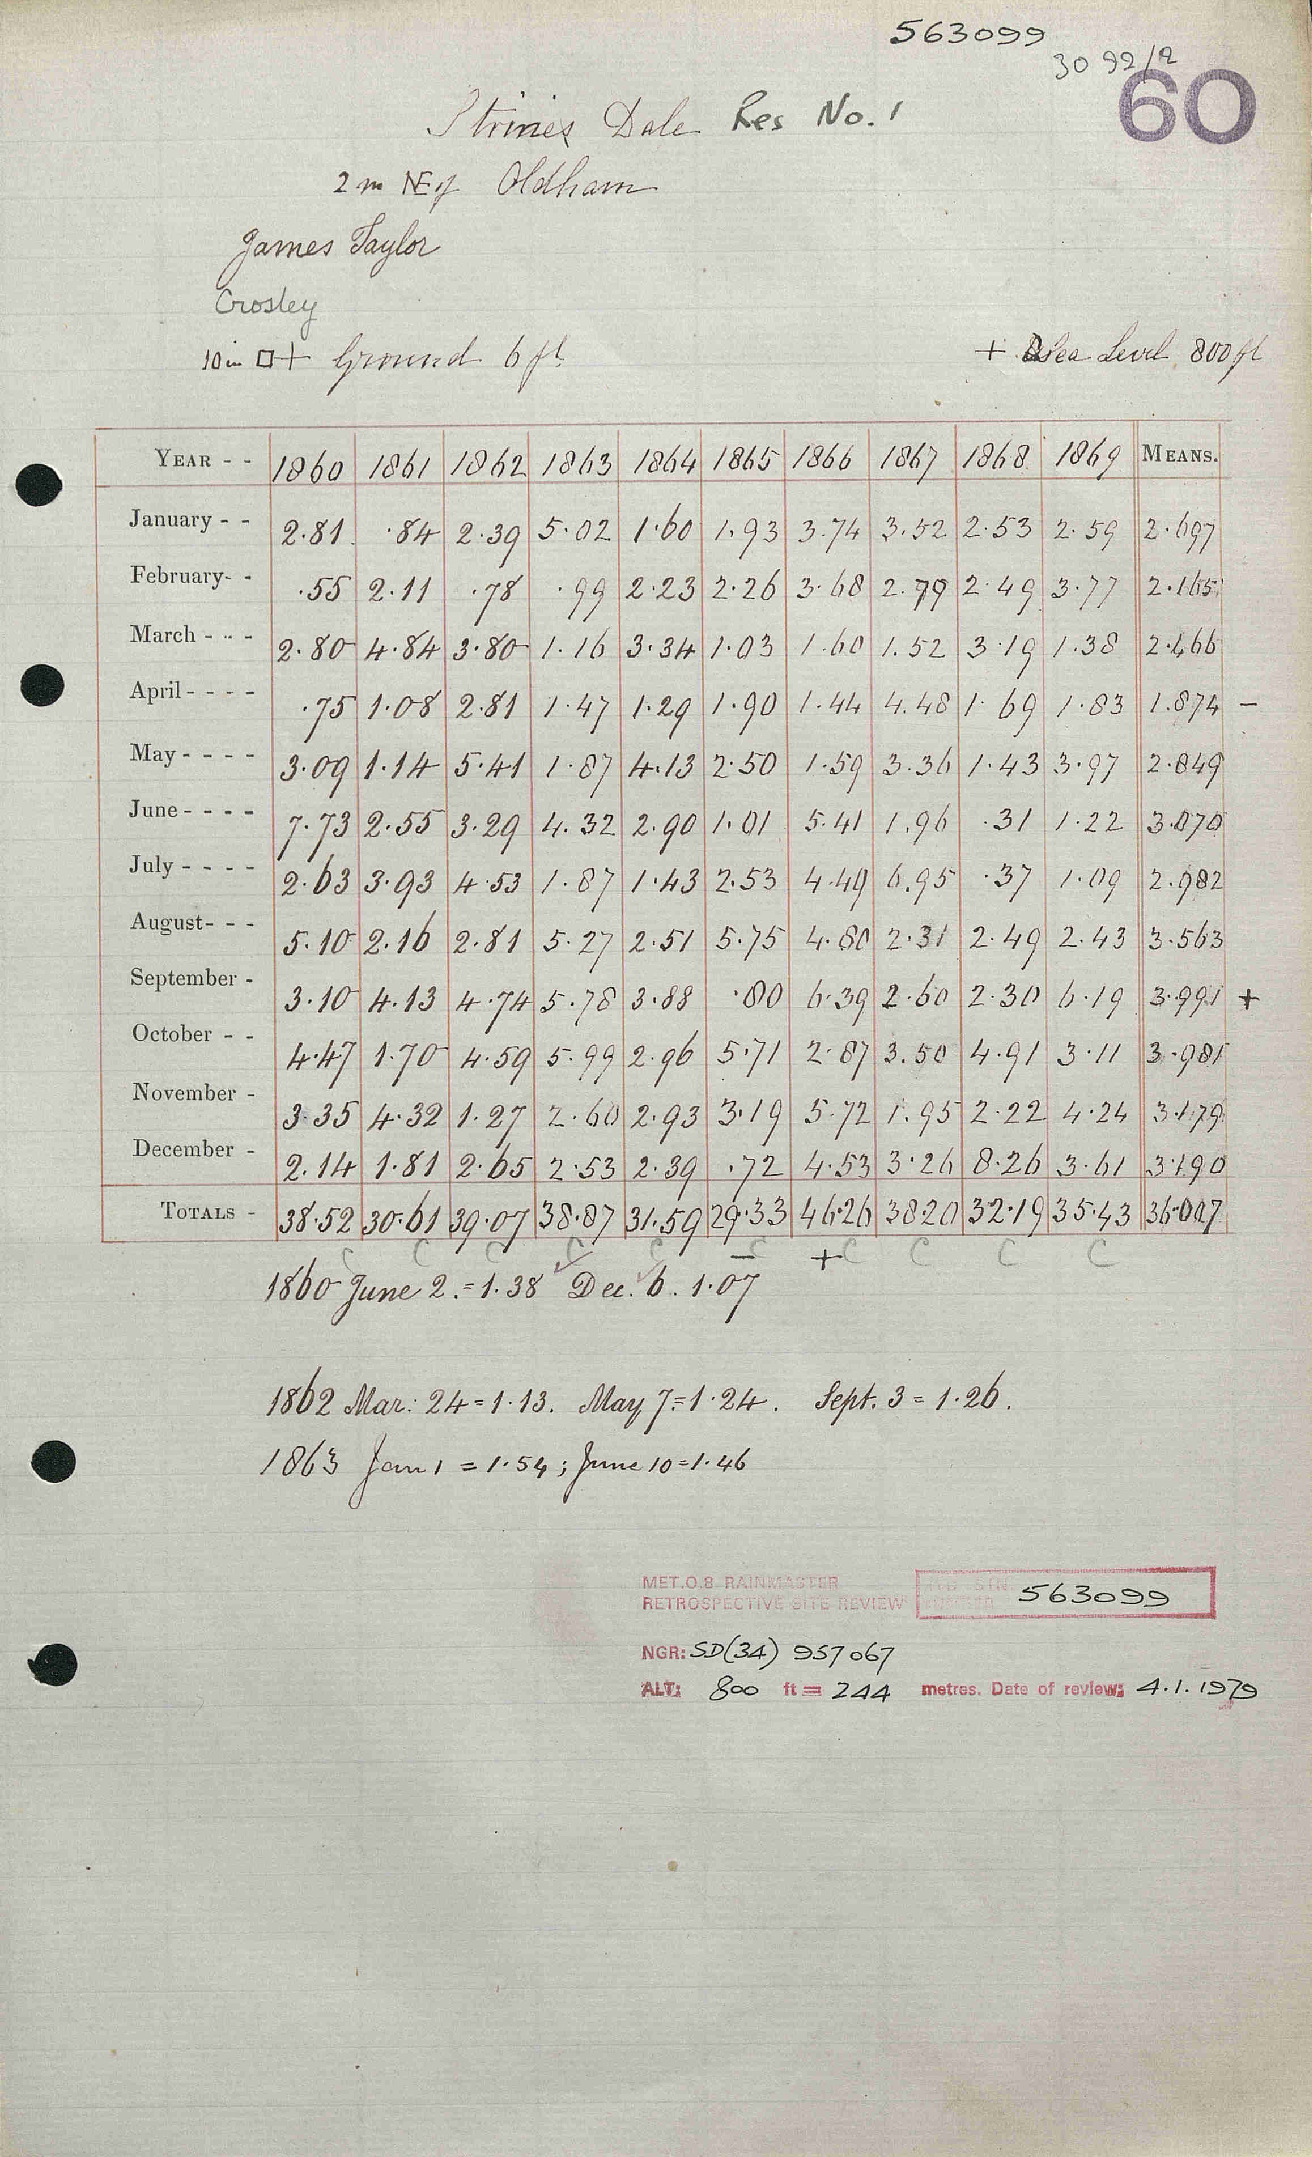 563099
3092/2
60
Strines Dale Res No. 1
2 m NE of Oldham
James Taylor
Crosley
10 in □ + Ground 6 ft
+ Sea Level 800 ft
YEAR - - 1860 1861 1862 1863 1864 1865 1866 1867 1868 1869 MEANS.
January - - 2.81 .84 2.39 5.02 1.60 1.93 3.74 3.52 2.53 2.59 2.697
February- - .55 2.11 .78 .99 2.23 2.26 3.68 2.79 2.49 3.77 2.165
March - - - 2.80 4.84 3.80 1.16 3.34 1.03 1.60 1.52 3.19 1.38 2.466
April - - - - .75 1.08 2.81 1.47 1.29 1.90 1.44 4.48 1.69 1.83 1.874 -
May - - - - 3.09 1.14 5.41 1.87 4.13 2.50 1.59 3.36 1.43 3.97 2.849
June - - - - 7.73 2.55 3.29 4.32 2.90 1.01 5.41 1.96 .31 1.22 3.070
July - - - - 2.63 3.93 4.53 1.87 1.43 2.53 4.49 6.95 .37 1.09 2.982
August- - - 5.10 2.16 2.81 5.27 2.51 5.75 4.80 2.31 2.49 2.43 3.563
September - 3.10 4.13 4.74 5.78 3.88 .80 6.39 2.60 2.30 6.19 3.991 +
October - - 4.47 1.70 4.59 5.99 2.96 5.71 2.87 3.50 4.91 3.11 3.981
November - 3.35 4.32 1.27 2.60 2.93 3.19 5.72 1.95 2.22 4.24 3.179
December - 2.14 1.81 2.65 2.53 2.39 .72 4.53 3.26 8.26 3.61 3.190
TOTALS - 38.52 30.61 39.07 38.87 31.59 29.33 46.26 38.20 32.19 35.43 36.007
C C C C C - C + C C C C
1860 June 2. = 1.38 Dec. 6. 1.07
1862 Mar: 24 = 1.13. May 7. = 1.24. Sept. 3 = 1.26.
1863 Jan 1 = 1.54 ; June 10 = 1.46
MET.O.8 RAINMASTER
RETROSPECTIVE SITE REVIEW
563099
NGR: SD(34) 957067
ALT: 800 ft = 244 metres. Date of review: 4.1.1979